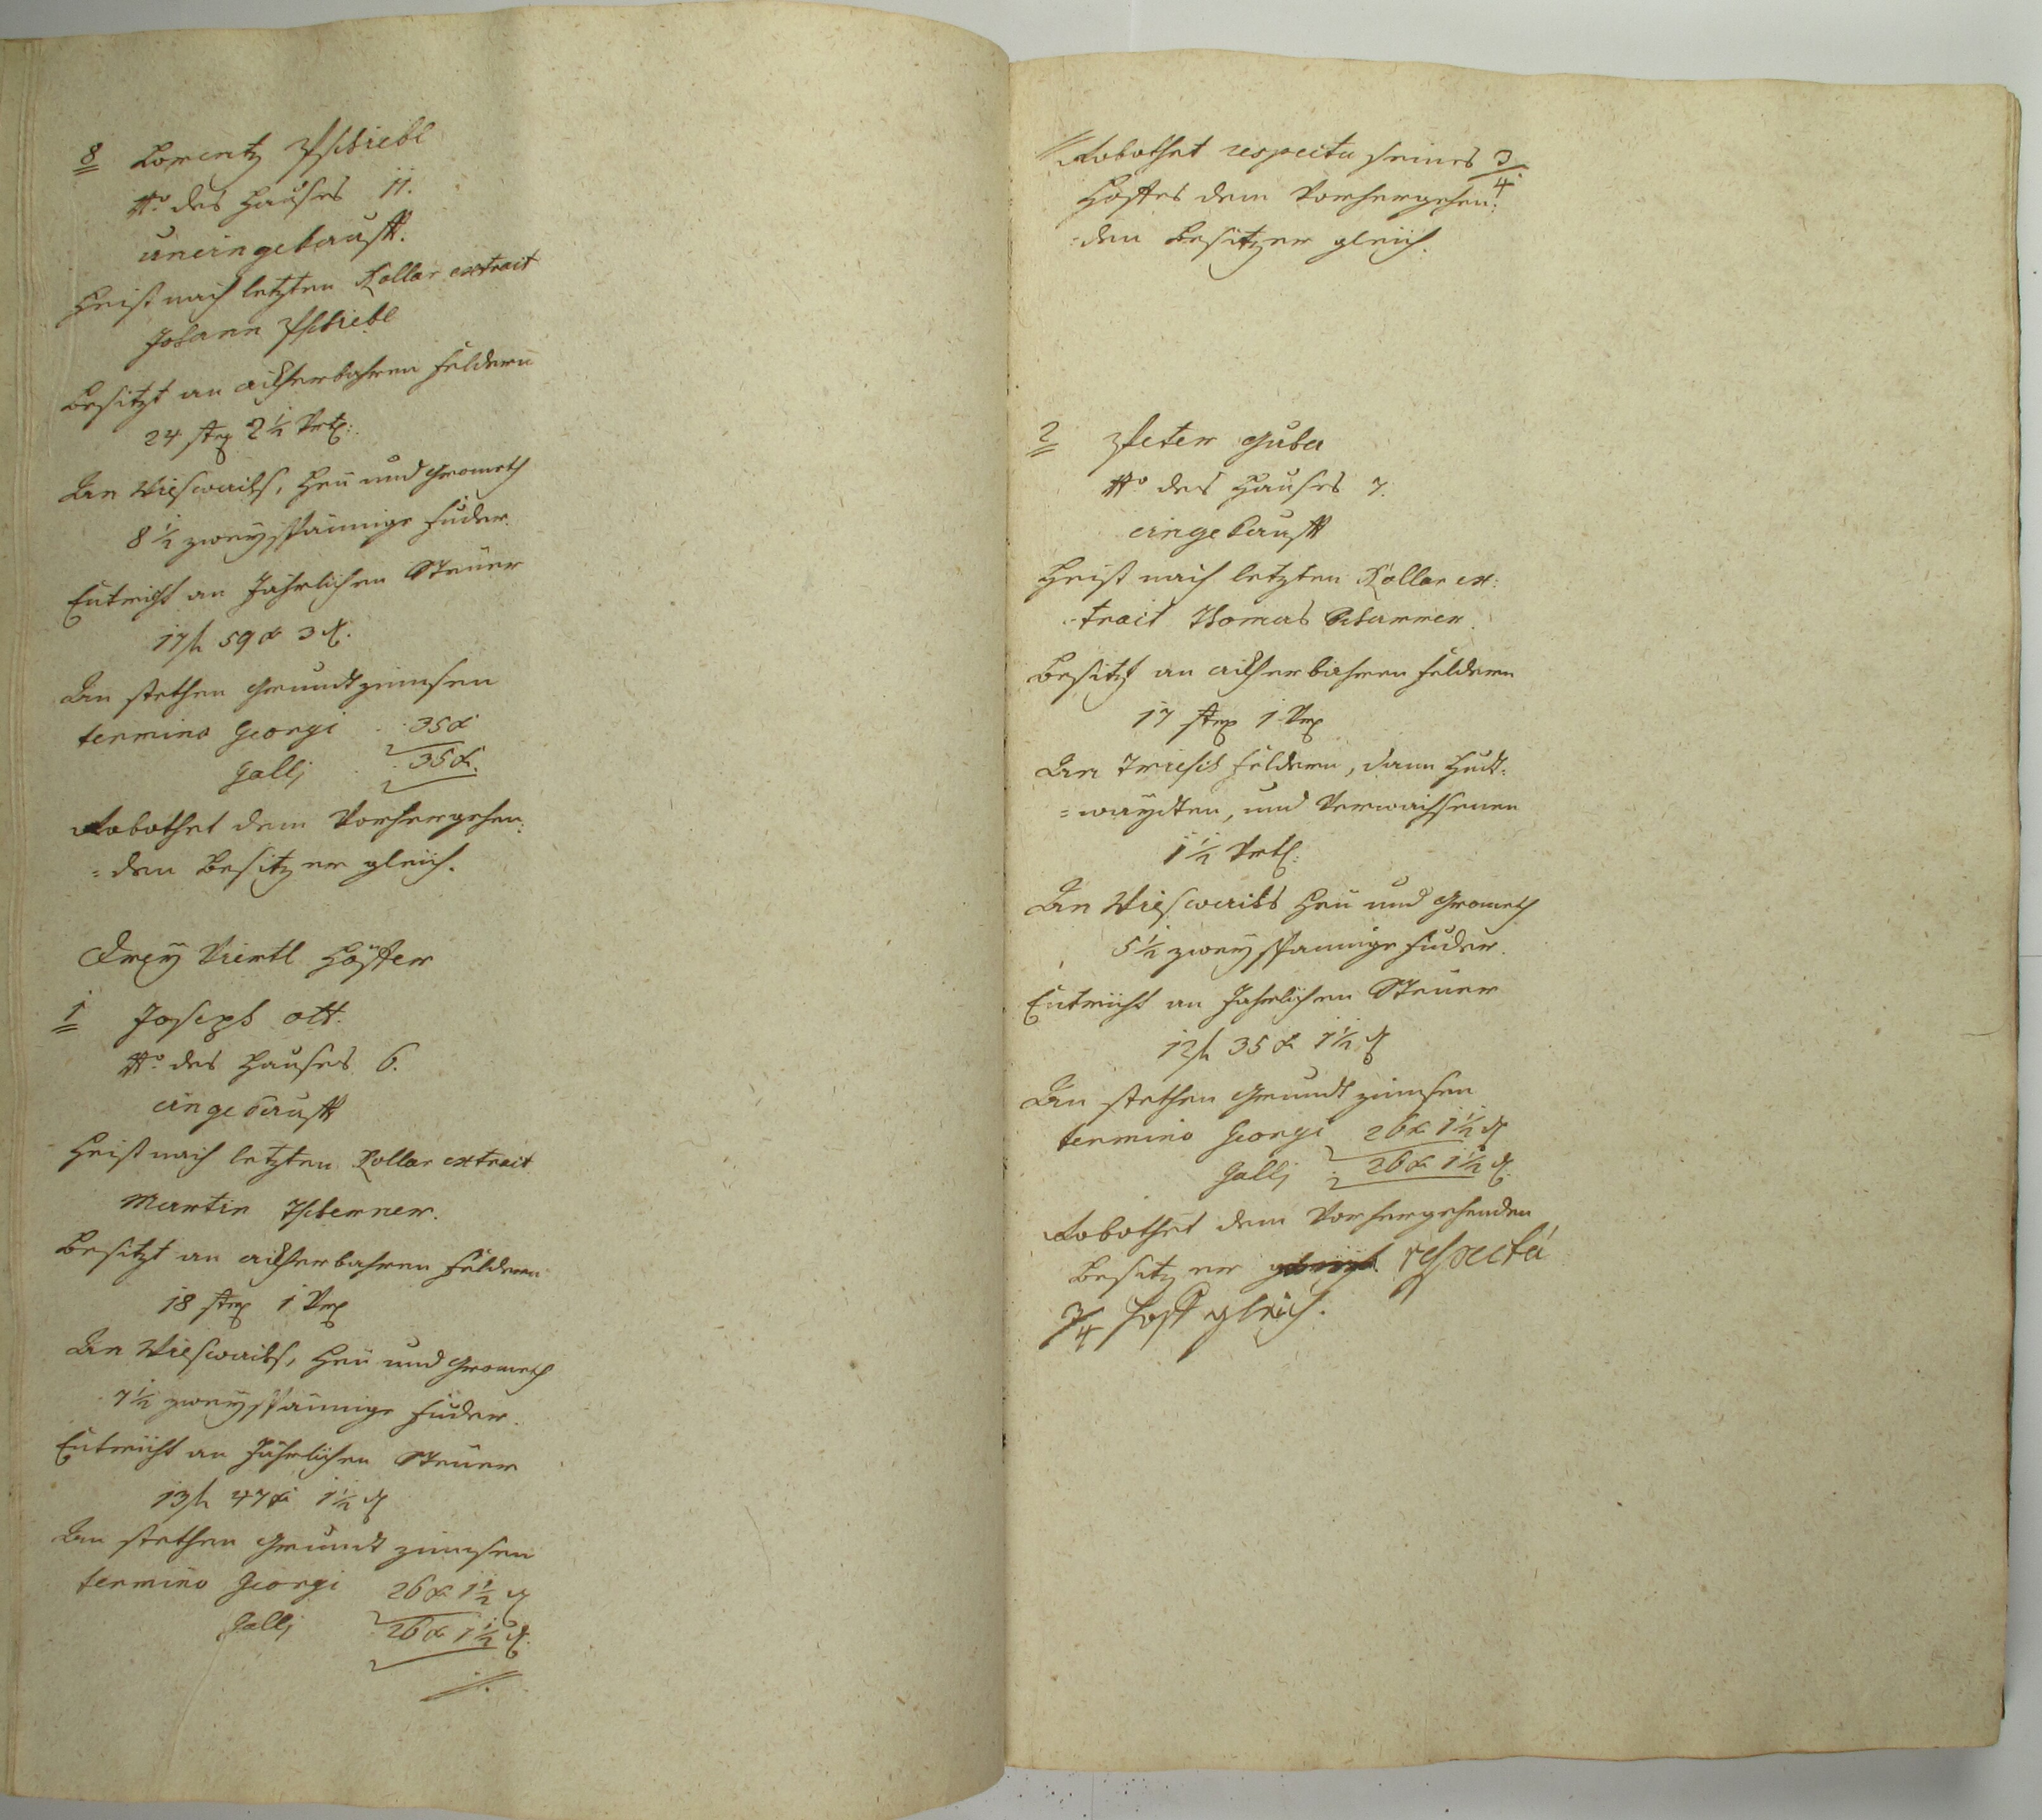 8 Lorentz Pschiebl
No. des Hauses 11.
uneingekaufft.
Heist nach letzten Rollar extrait
Johann Pschiebl
Besitzt an ackherbahren Feldern
24 str 2 1/2 Vrtl:
An Wieswachs, Heu und Grometh
8 1/2 zweyspännige Fuder.
Entricht an Jährlichen Steuer
17 f 59 x 3 d.
An stethen Grundtzünsen
termino Georgi 35 x
Gallj 35 x.
Robothet dem Vorhergehen:
=den Besitzer gleich.
Drey Viertl Höffer
1 Joseph Ott.
No. des Hauses 6.
eingekaufft
Heist nach letzten Rollar extrait
Martin Tscherner.
Besitzt an ackherbahren Feldern
18 str 1 Vrl
An Wieswachs, Heu und Grometh
7 1/2 zweyspännige Fuder.
Entricht an Jährlichen Steuer
13 f 47 x 1 1/2 d
An stethen Grundt zünsen
termino Georgi 26 x 1 1/2 d
Gallj 26 x 1 1/2 d.
//.
// Robothet respectu seines 3/4
Hoffes dem Vorhergehen:
=den Besitzer gleich.
2 Peter Guba
No des Hauses 7.
eingekaufft
Heist nach letzten Rollar ex:
=trait Thomas
Besitzt an ackherbahren Feldern
17 str 1 Vrl
An Triesch Feldern, dann Hudt:
=waydten, und Verwachsenen
1 1/2 Vrtl:
An Wieswachs Heu und Grometh
5 1/2 zweyspannige Fuder.
Entricht an Jahrlichen Steuer
12 f 35 x 1 1/2 d
An stethen Grundt zünsen
termino Georgi 26 x 1 1/2 d
Gallj : 26 x 1 1/2 d.
Robothet dem Vorhergehenden
Besitzer gleich. respectu
3/4 Hoff gleich.